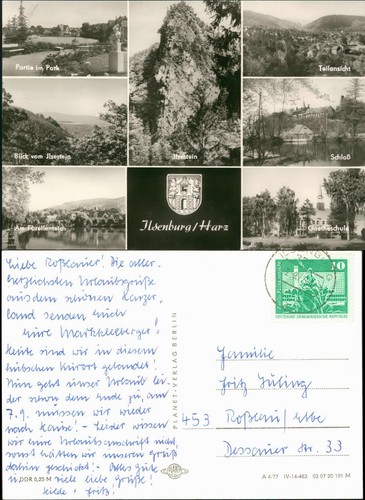 Partie im Park
Teilansicht
Blick vom Ilsestein
Ilsestein
Schloß
Am Forellenteich
Ilsenburg/Harz
Goetheschule
Liebe Roßlauer! Die aller-
herzlichsten Urlaubsgrüße
aus dem schönen Harzer-
land senden Euch
Eure Markkleeberger!
Heute sind wir in diesem
hübschen Kurort gelandet!
Nun geht unser Urlaub lei-
der schon dem Ende zu, am
7.9. müssen wir wieder
nach Hause! Leider wissen
wir Eure Urlaubsanschrift nicht,
sonst hätten wir unseren Gruß
dahin geschickt! Alles Gute
u. viele liebe Grüße!
Hilde u. Fritz.
DDR 0,25 M
PLANET-VERLAG BERLIN
10
DEUTSCHE DEMOKRATISCHE REPUBLIK
Familie
Fritz Züling
453 Roßlau/Elbe
Dessauer Str. 33
A 4-77 IV-14-483 03 07 20 191 M